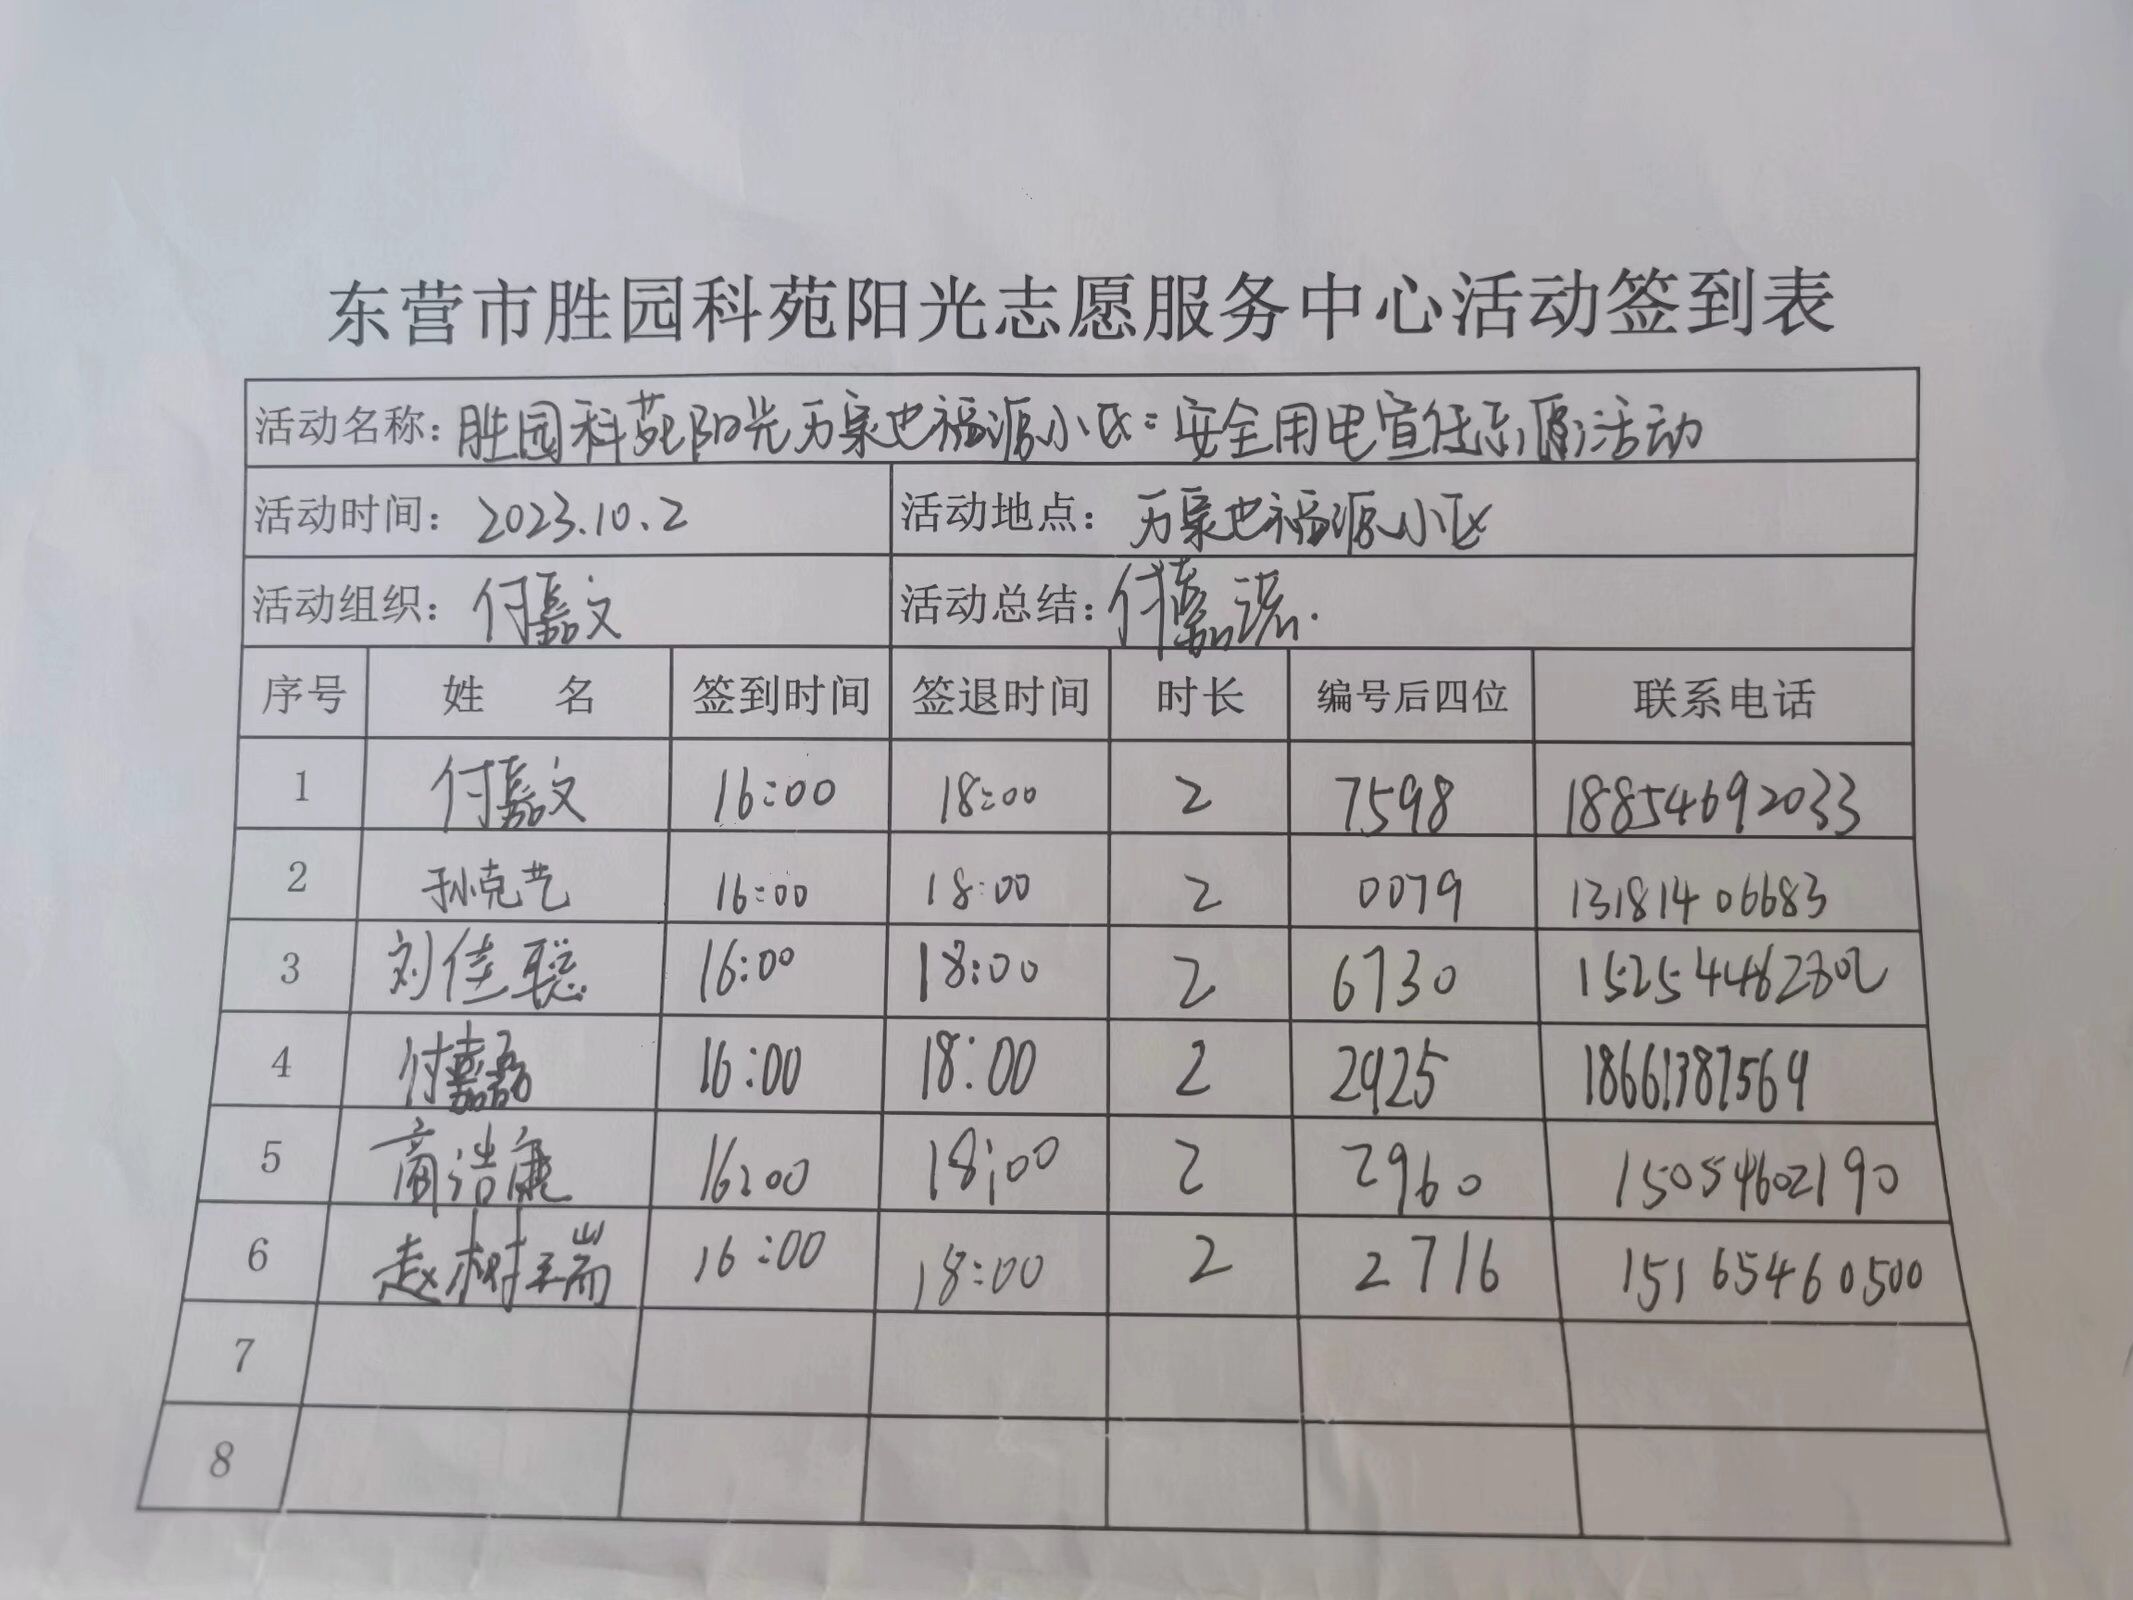 东营市胜园科苑阳光志愿服务中心活动签到表
活动名称：胜园科苑阳光万泉也福源小区：安全用电宣传志愿活动
活动时间：2023.10.2 活动地点：万泉也福源小区
活动组织：付嘉文 活动总结：付嘉
序号 姓 名 签到时间 签退时间 时长 编号后四位 联系电话
1 付嘉文 16:00 18:00 2 7598 18854692033
2 孙克艺 16:00 18:00 2 0079 13181406683
3 刘佳聪 16:00 18:00 2 6730 15254462802
4 付嘉磊 16:00 18:00 2 2925 18661387569
5 商浩康 16:00 18:00 2 2960 15054602190
6 赵树瑞 16:00 18:00 2 2716 15165460500
7
8